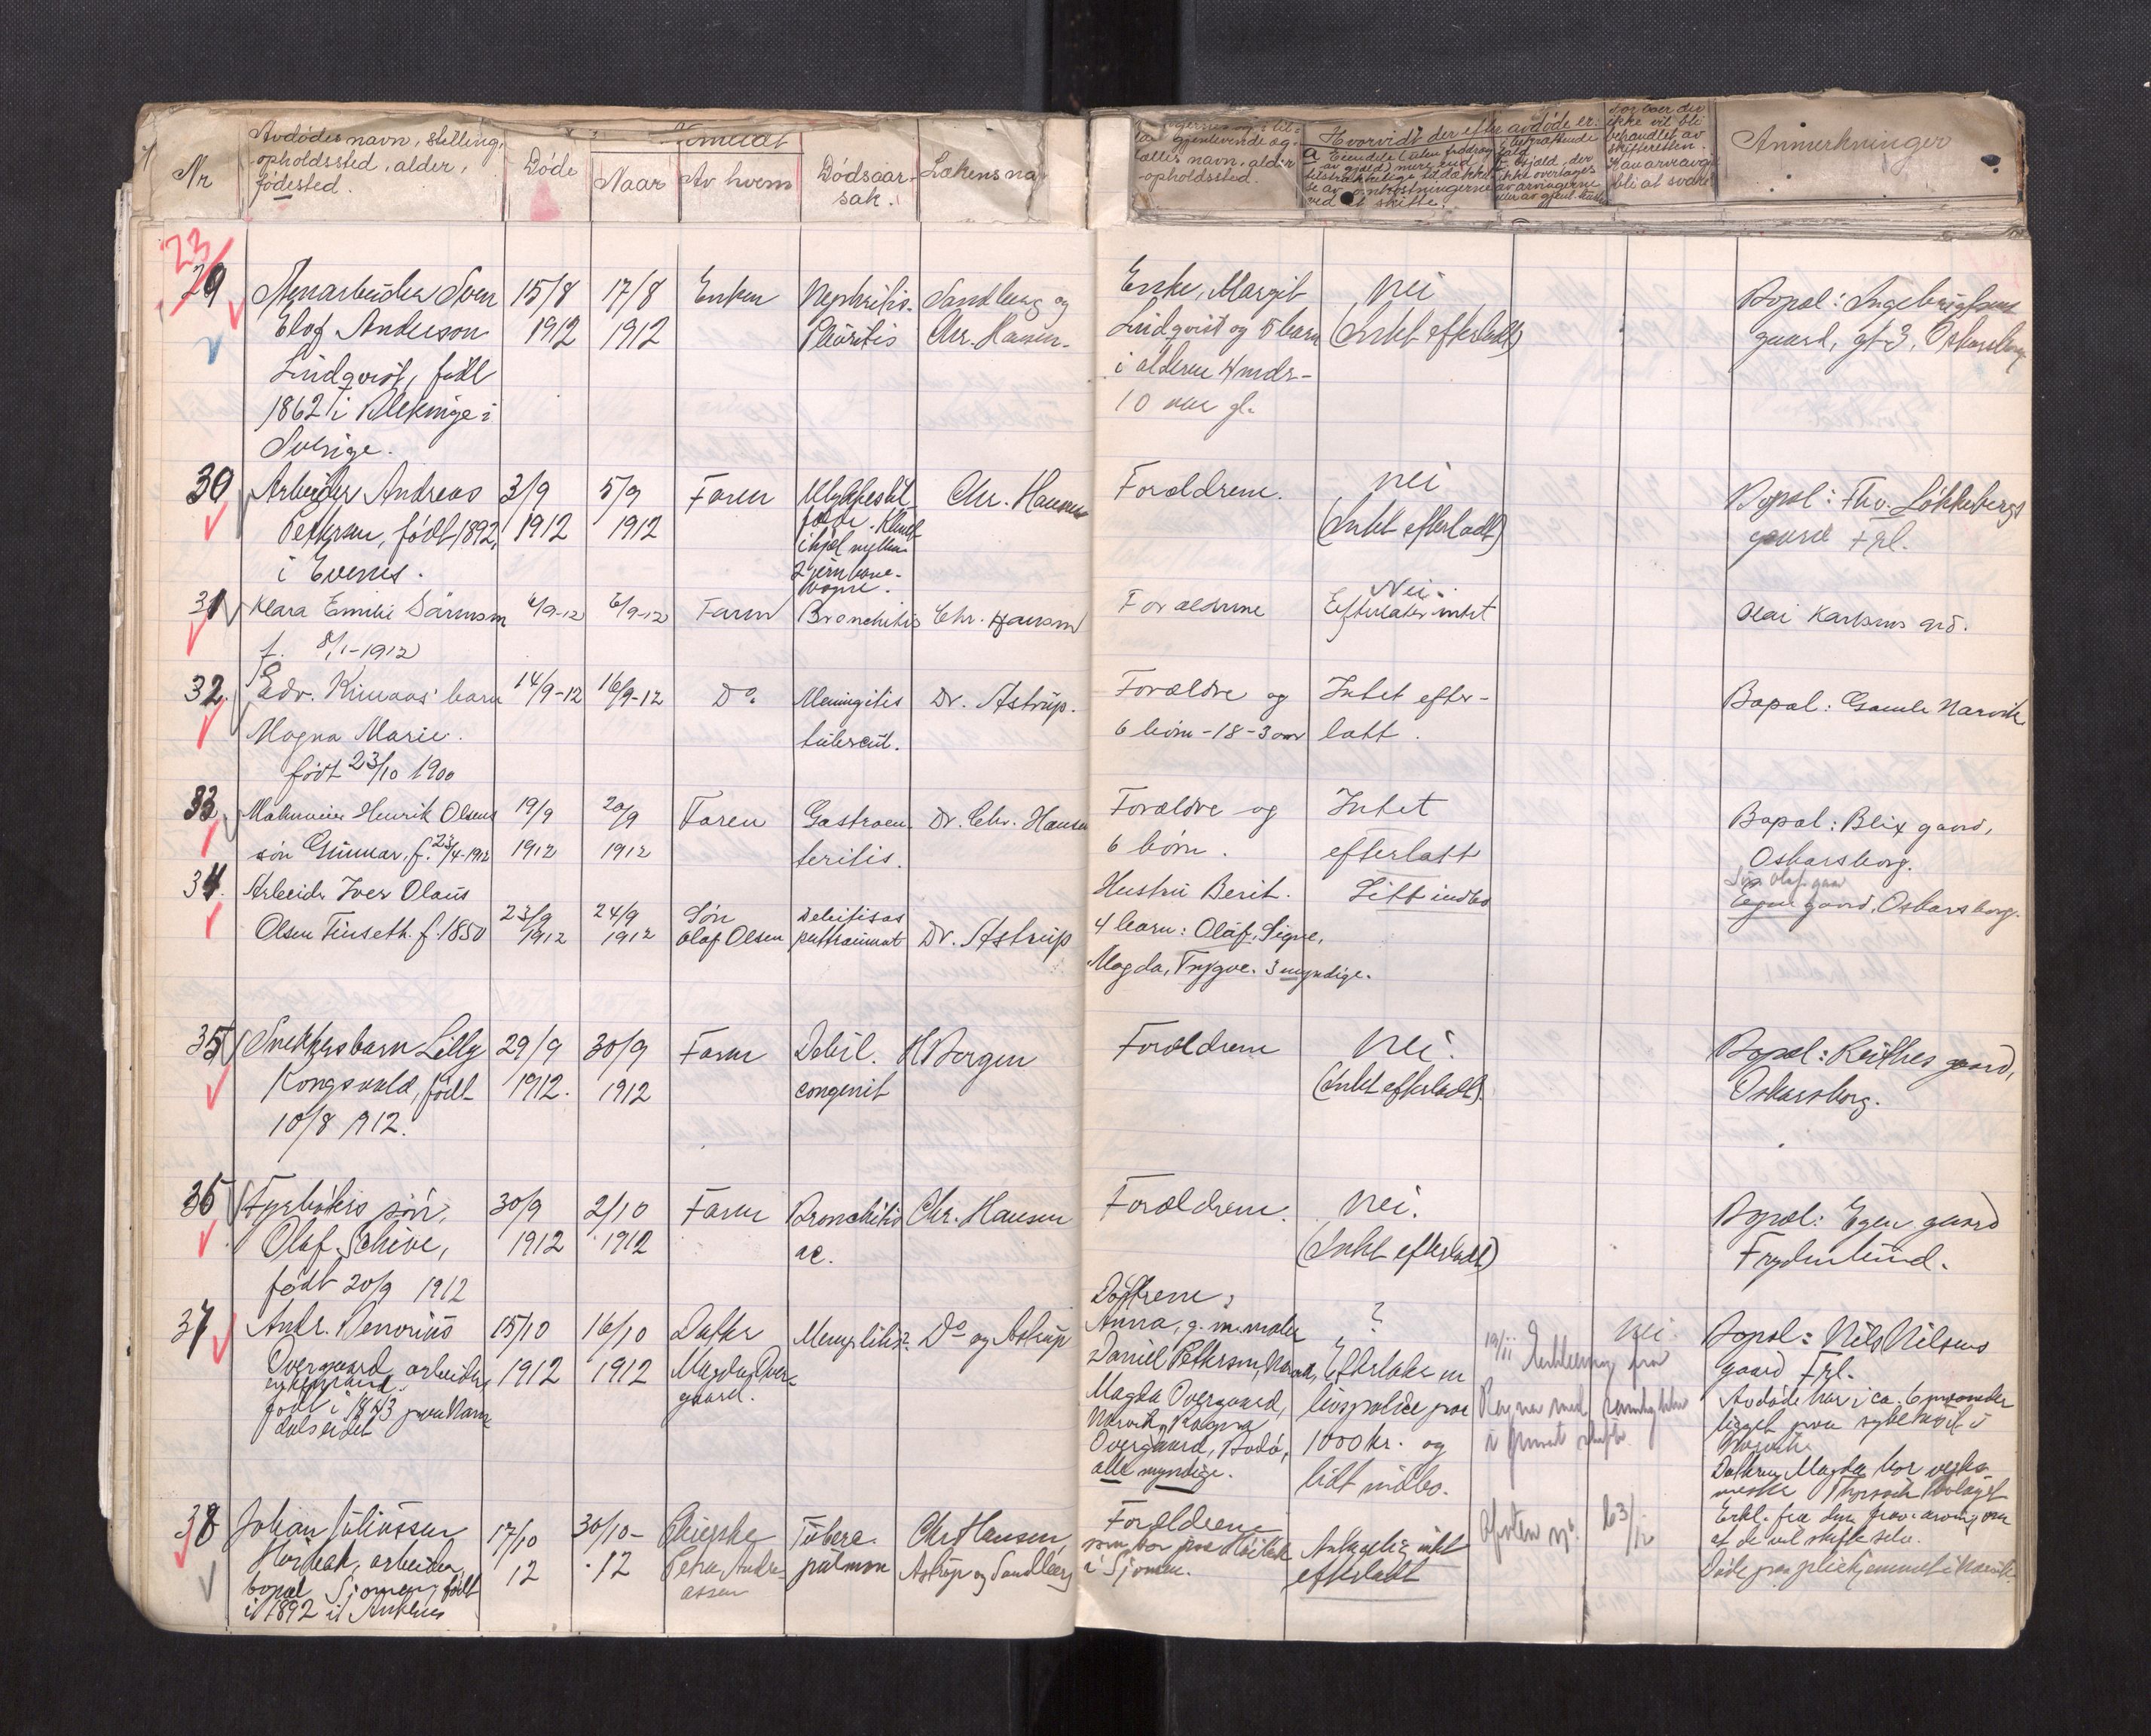 Nr
Avdødes navn, stilling,
opholdssted, alder,
fødested.
Døde
Anmeldt
Naar
Av hvem
Dødsaar-
sak.
Lækens na
gjenlevende æg-
fælles navn, alder
opholdssted.
Hvorvidt der efter avdøde er:
ved et skifte.
skifteretten.
Anmerkninger
23
29
Sven
Elof Anderson
Lindqvist, född
1862 i Blekinge i
Sverige.
15/8
1912
17/8
1912
Enken
Nephritis.
Pleuritis
Sandberg og
Chr. Hansen.
Enke, Margit
Lindqvist og 5 barn
i alderen 4 mdr-
10 aar gl.
nei
(Intet efterladt)
Bopæl: Ingebrigtsens
gaard, gt 3, Oskarsborg
30
Arbeider Andreas
Pettersen, født 1892,
i Evenes.
3/9
1912
5/9
1912
Faren
Ulykkestil-
fælde. Klemt
ihjel mellem
2 jernbane-
vogne.
Chr. Hansen
Forældrene.
nei
(Intet efterladt)
Bopæl: Thv. Løkkebergs
gaard Frl.
31
Klara Emilie
f. 8/1-1912
4/9-12
6/9-12
Faren
Bronchitis
Chr. Hansen
Forældrene
Nei.
Efterlater intet
Olai Karlsens grd.
32.
Edv. Kimaas' barn
Magna Marie.
født 23/10 1900
14/9-12
16/9-12
Do
Meningitis
tubercul.
Dr. Astrup.
Forældre og
6 börn - 18 - 3 aar
Intet efter-
latt.
Bopæl: Gamle Narvik
33.
Henrik Olsens
sön Gunnar. f. 23/4-1912
19/9
1912
20/9
1912
Faren
Gastroen-
teritis.
Dr. Chr. Hansen
Forældre og
6 börn.
Intet
efterlatt
Bopæl: Blix gaard,
Oskarsborg.
34.
Arbeider Iver Olaus
Olsen Tinseth. f. 1850
23/9
1912
24/9
1912
Sön
Olaf Olsen
Dr. Astrup
Hustru Berit.
4 barn: Olaf, Signe,
Magda, Trygve. 3 myndige.
Litt indbo
Egen gaard, Oskarsborg.
35
Snekkersbarn Lilly
Kongsvold, født
10/8 1912.
29/9
1912.
30/9
1912
Faren
Debil.
congenit
H Borgen
Forældrene
nei.
(Intet efterladt).
Bopæl: Reithes gaard,
Oskarsborg.
36
Fyrbøters søn,
Olaf Schive,
født 20/9 1912
30/9
1912
2/10
1912
Faren
Bronchitis
ac.
Chr. Hansen
Forældrene.
nei.
(Intet efterladt)
Bopæl: Egen gaard
Frydenlund.
37
Andr.
Overgaard, arbeider
enkemand.
født i 1843 paa Nam
dalseidet
15/10
1912
16/10
1912
Datter
Magda Over-
gaard.
Do og Astrup
Døttrene:
Anna, g. m. maler
Daniel Pettersen, Narvik,
Magda Overgaard,
Narvik, Ragna
Overgaard, Bodø,
alle myndige.
?
Efterlater en
livspolice paa
1000 kr. og
lidt indbo.
19/11 Erklæring fra
Ragna med
i privat skifte.
nei.
Bopæl: Nils Nilsens
gaard Frl.
Avdøde har i ca. 6 maaneder
ligget paa sykehuset i
Narvik.
Datteren Magda bor
Erkl. fra
at de vil skifte selv.
38
Johan Juliussen
Horbak, arbeider,
bopæl Sjomen, født
i 1892 i Ankenes
17/10
12
30/10-
12
Petra Andre-
assen
Tuberc.
pulmon
Chr Hansen,
Astrup og Sandberg
Forældrene
som bor paa
i Sjomen.
Antagelig intet
efterladt
Ofoten sp.
23/12
Døde paa pleiehjemmet i Narvik.